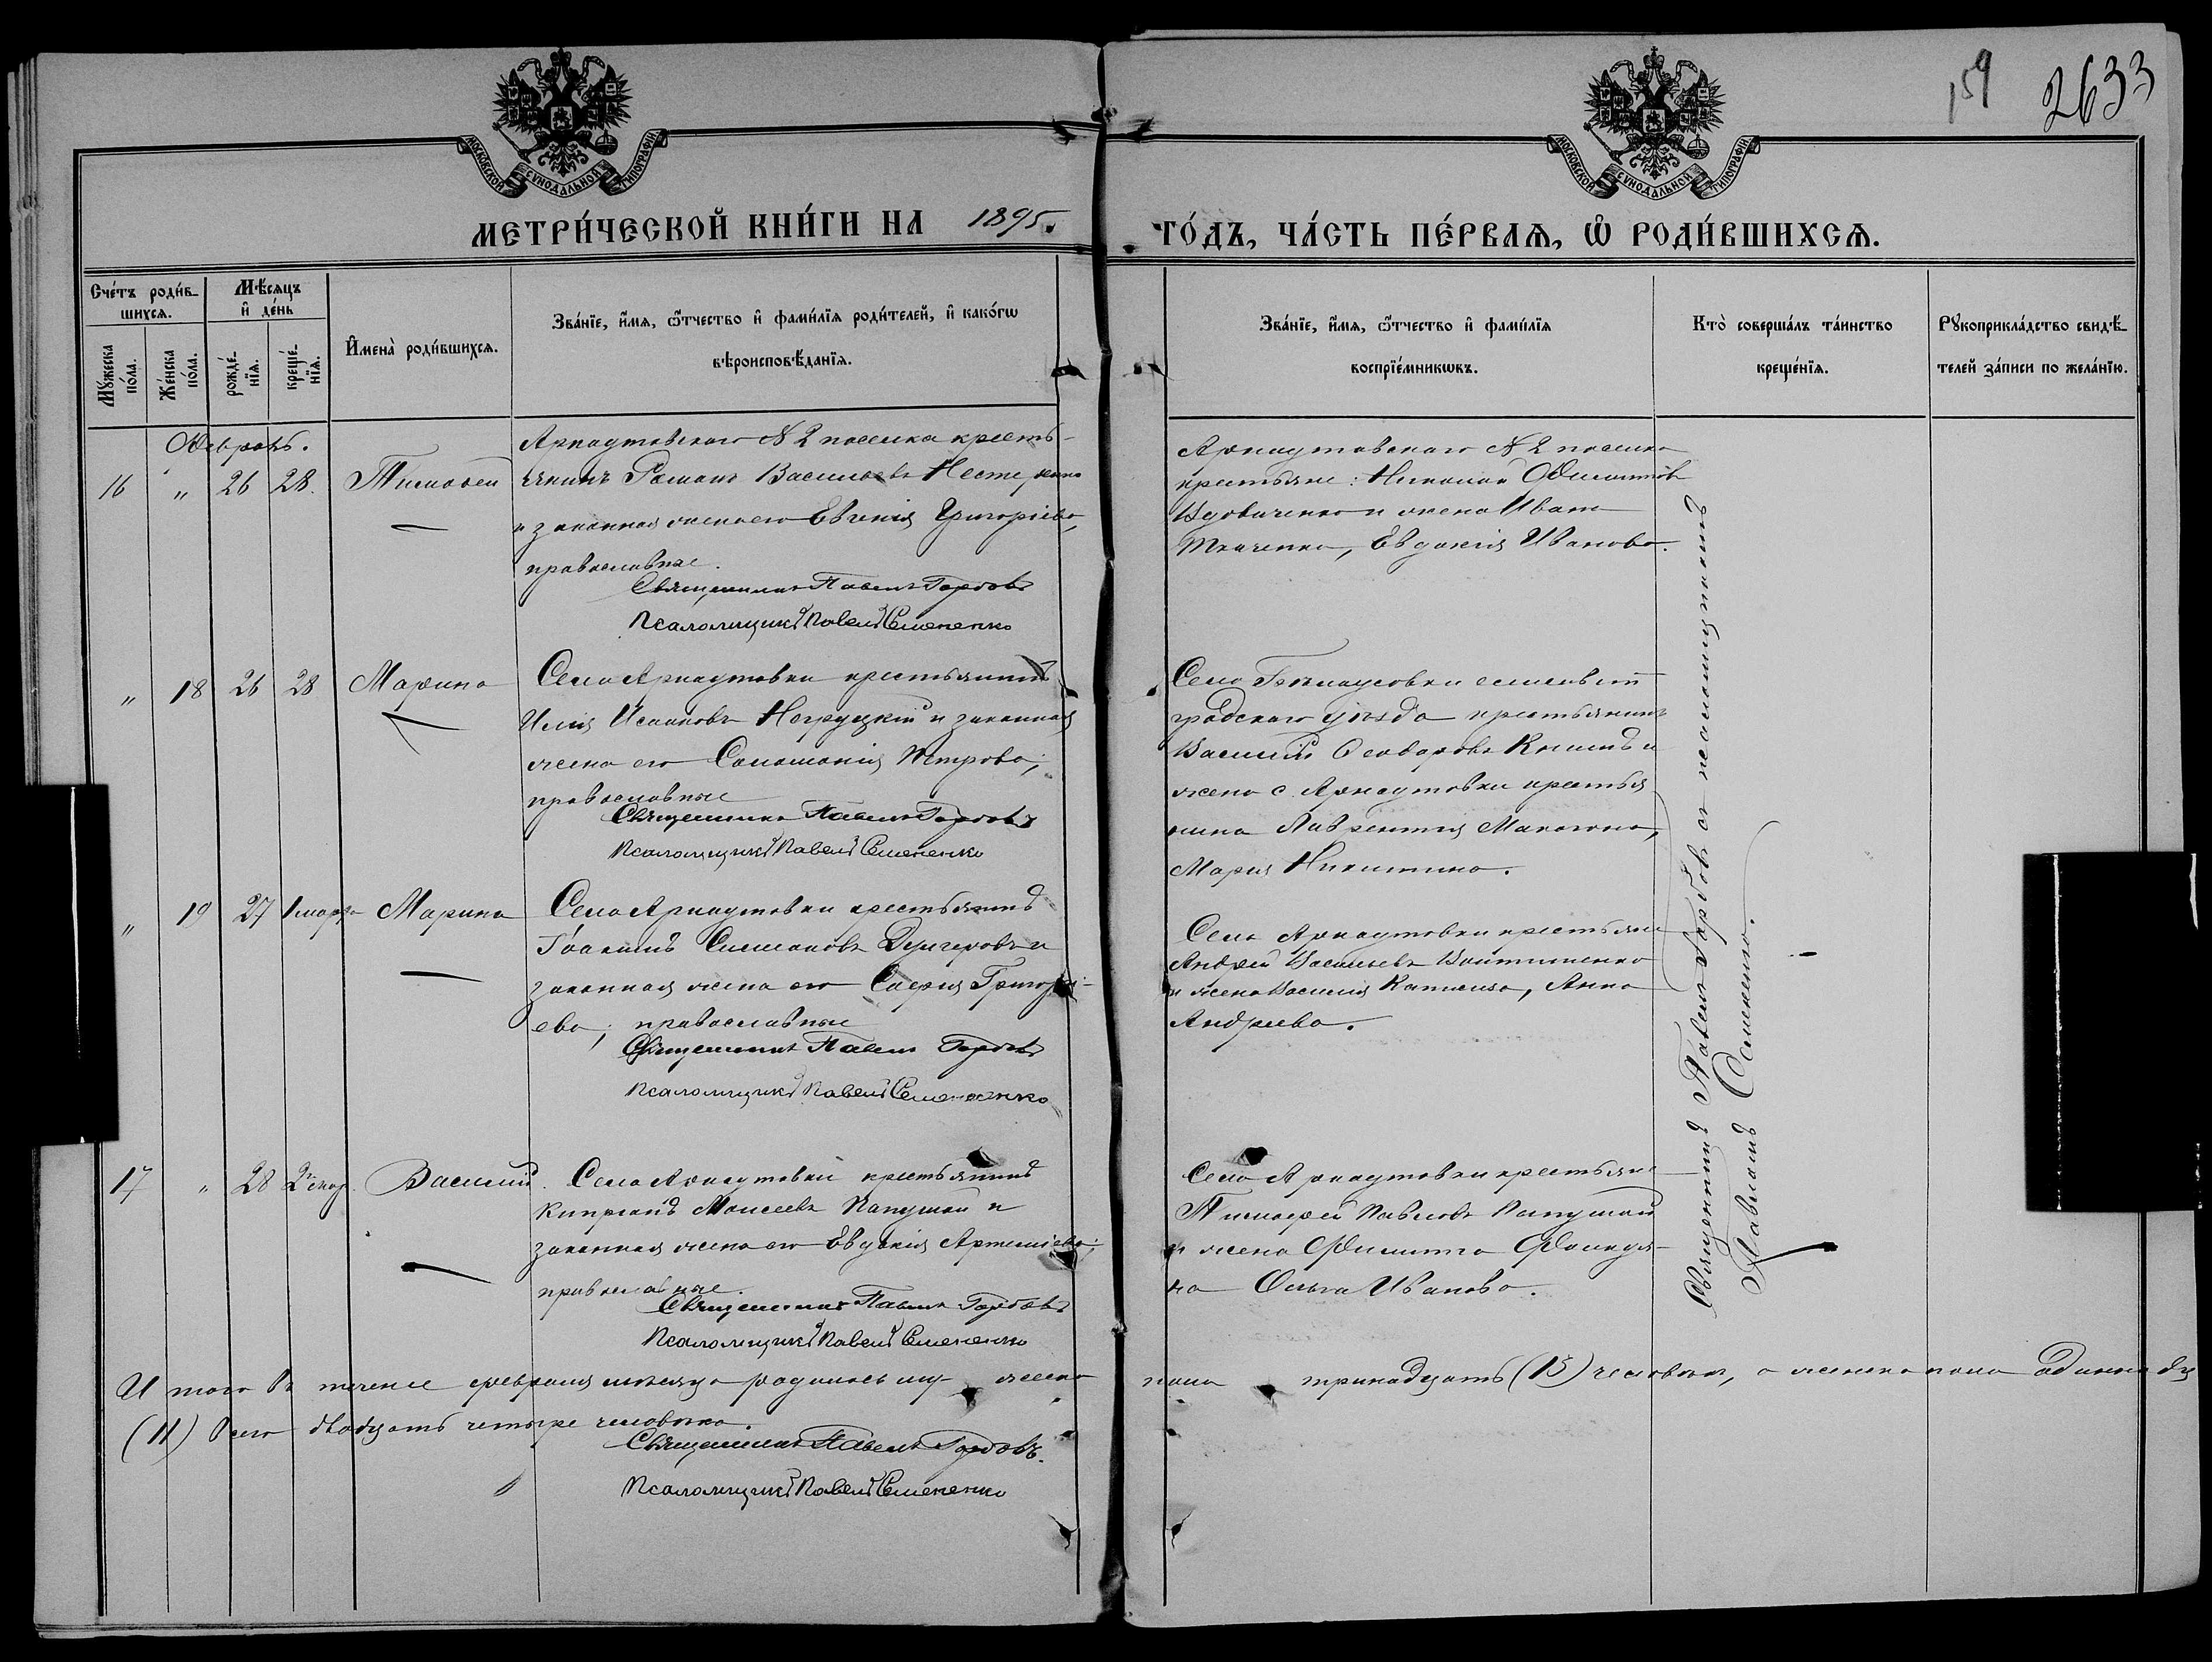 159 2633
МОСКОВСКОЙ СѴНОДАЛЬНОЙ ТИПОГРАФІИ
МОСКОВСКОЙ СѴНОДАЛЬНОЙ ТИПОГРАФІИ
МЕТРИ́ЧЕСКОЙ КНИ́ГИ НА 1895.
ГО́ДЪ, ЧА́СТЬ ПЕ́РВАѦ, Ѡ҆ РОДИ́ВШИХСѦ.
Сче́тъ роди́в-
шихсѧ.
Мꙋ́жеска
по́ла.
Же́нска
по́ла.
Мѣ́сѧцъ
и҆ де́нь
рожде́-
нїѧ.
креще́-
нїѧ.
И҆мена̀ роди́вшихсѧ.
Зва́нїе, и҆́мѧ, ѻ҆́тчество и҆ фами́лїѧ роди́телей, и҆ како́гѡ
вѣроисповѣ́данїѧ.
Зва́нїе, и҆́мѧ, ѻ҆́тчество и҆ фами́лїѧ
воспрїе́мникѡвъ.
Кто̀ соверша́лъ та́инство
креще́нїѧ.
Рꙋкоприкла́дство свидѣ́-
телей за́писи по жела́нїю.
Февраль.
16 " 26 28. Тимофей
Арнаутовскаго № 2 поселка кресть-
янинъ Романъ Васильевъ Нестеренко
и законная жена его Евгенія Григоріева,
православные.
Священникъ Павелъ Горбовъ
Псаломщикъ Павелъ Семененко
Арнаутовскаго № 2 поселка
крестьяне: Николай Филиповъ
Вдовиченко и жена Ивана
Ткаченка, Евдокія Иванова.
" 18 26 28 Марина
Села Арнаутовки крестьянинъ
Илія ИсааковъНогруцкій и законная
жена его Соломонія Петрова;
православные
Священникъ Павелъ Горбовъ
Псаломщикъ Павелъ Семененко
Села елисавет
градскаго уѣзда крестьянинъ
Василій Феодоровъ и
жена с. Арнаутовки крестья
нина Лаврентія
Марія Никитина.
" 19 27 1 марта Марина
Села Арнаутовки крестьянинъ
Іоакимъ Симеоновъ Дунгеровъ и
законная жена его Софія Григорі-
ева; православные
Священникъ Павелъ Горбовъ
Псаломщикъ Павелъ Семененко
Села Арнаутовки крестьяне
Андрей Васильевъ Войтишенко
и жена Василія Андреева, Анна
Андреева.
17 " 28 2 мар. Василій.
Села Арнаутовки крестьянинъ
Кипріанъ Моисеевъ Папушой и
законная жена его Евдокія Артеміева;
православные.
Священникъ Павелъ Горбовъ
Псаломщикъ Павелъ Семененко
Села Арнаутовки крестьяне
Тимофей Павловъ Папушой
и жена Филиппа
на Ольга Иванова.
Священникъ Павелъ Горбовъ съ псаломщикомъ
Павломъ Семененко.
И того въ теченіе февраля мѣсяца родилось муж жеска пола тринадцать (13) человѣкъ, а женска пола одиннадц
(11) всего двадцать четыре человѣка.
Священникъ Павелъ Горбовъ.
Псаломщикъ Павелъ Семененко